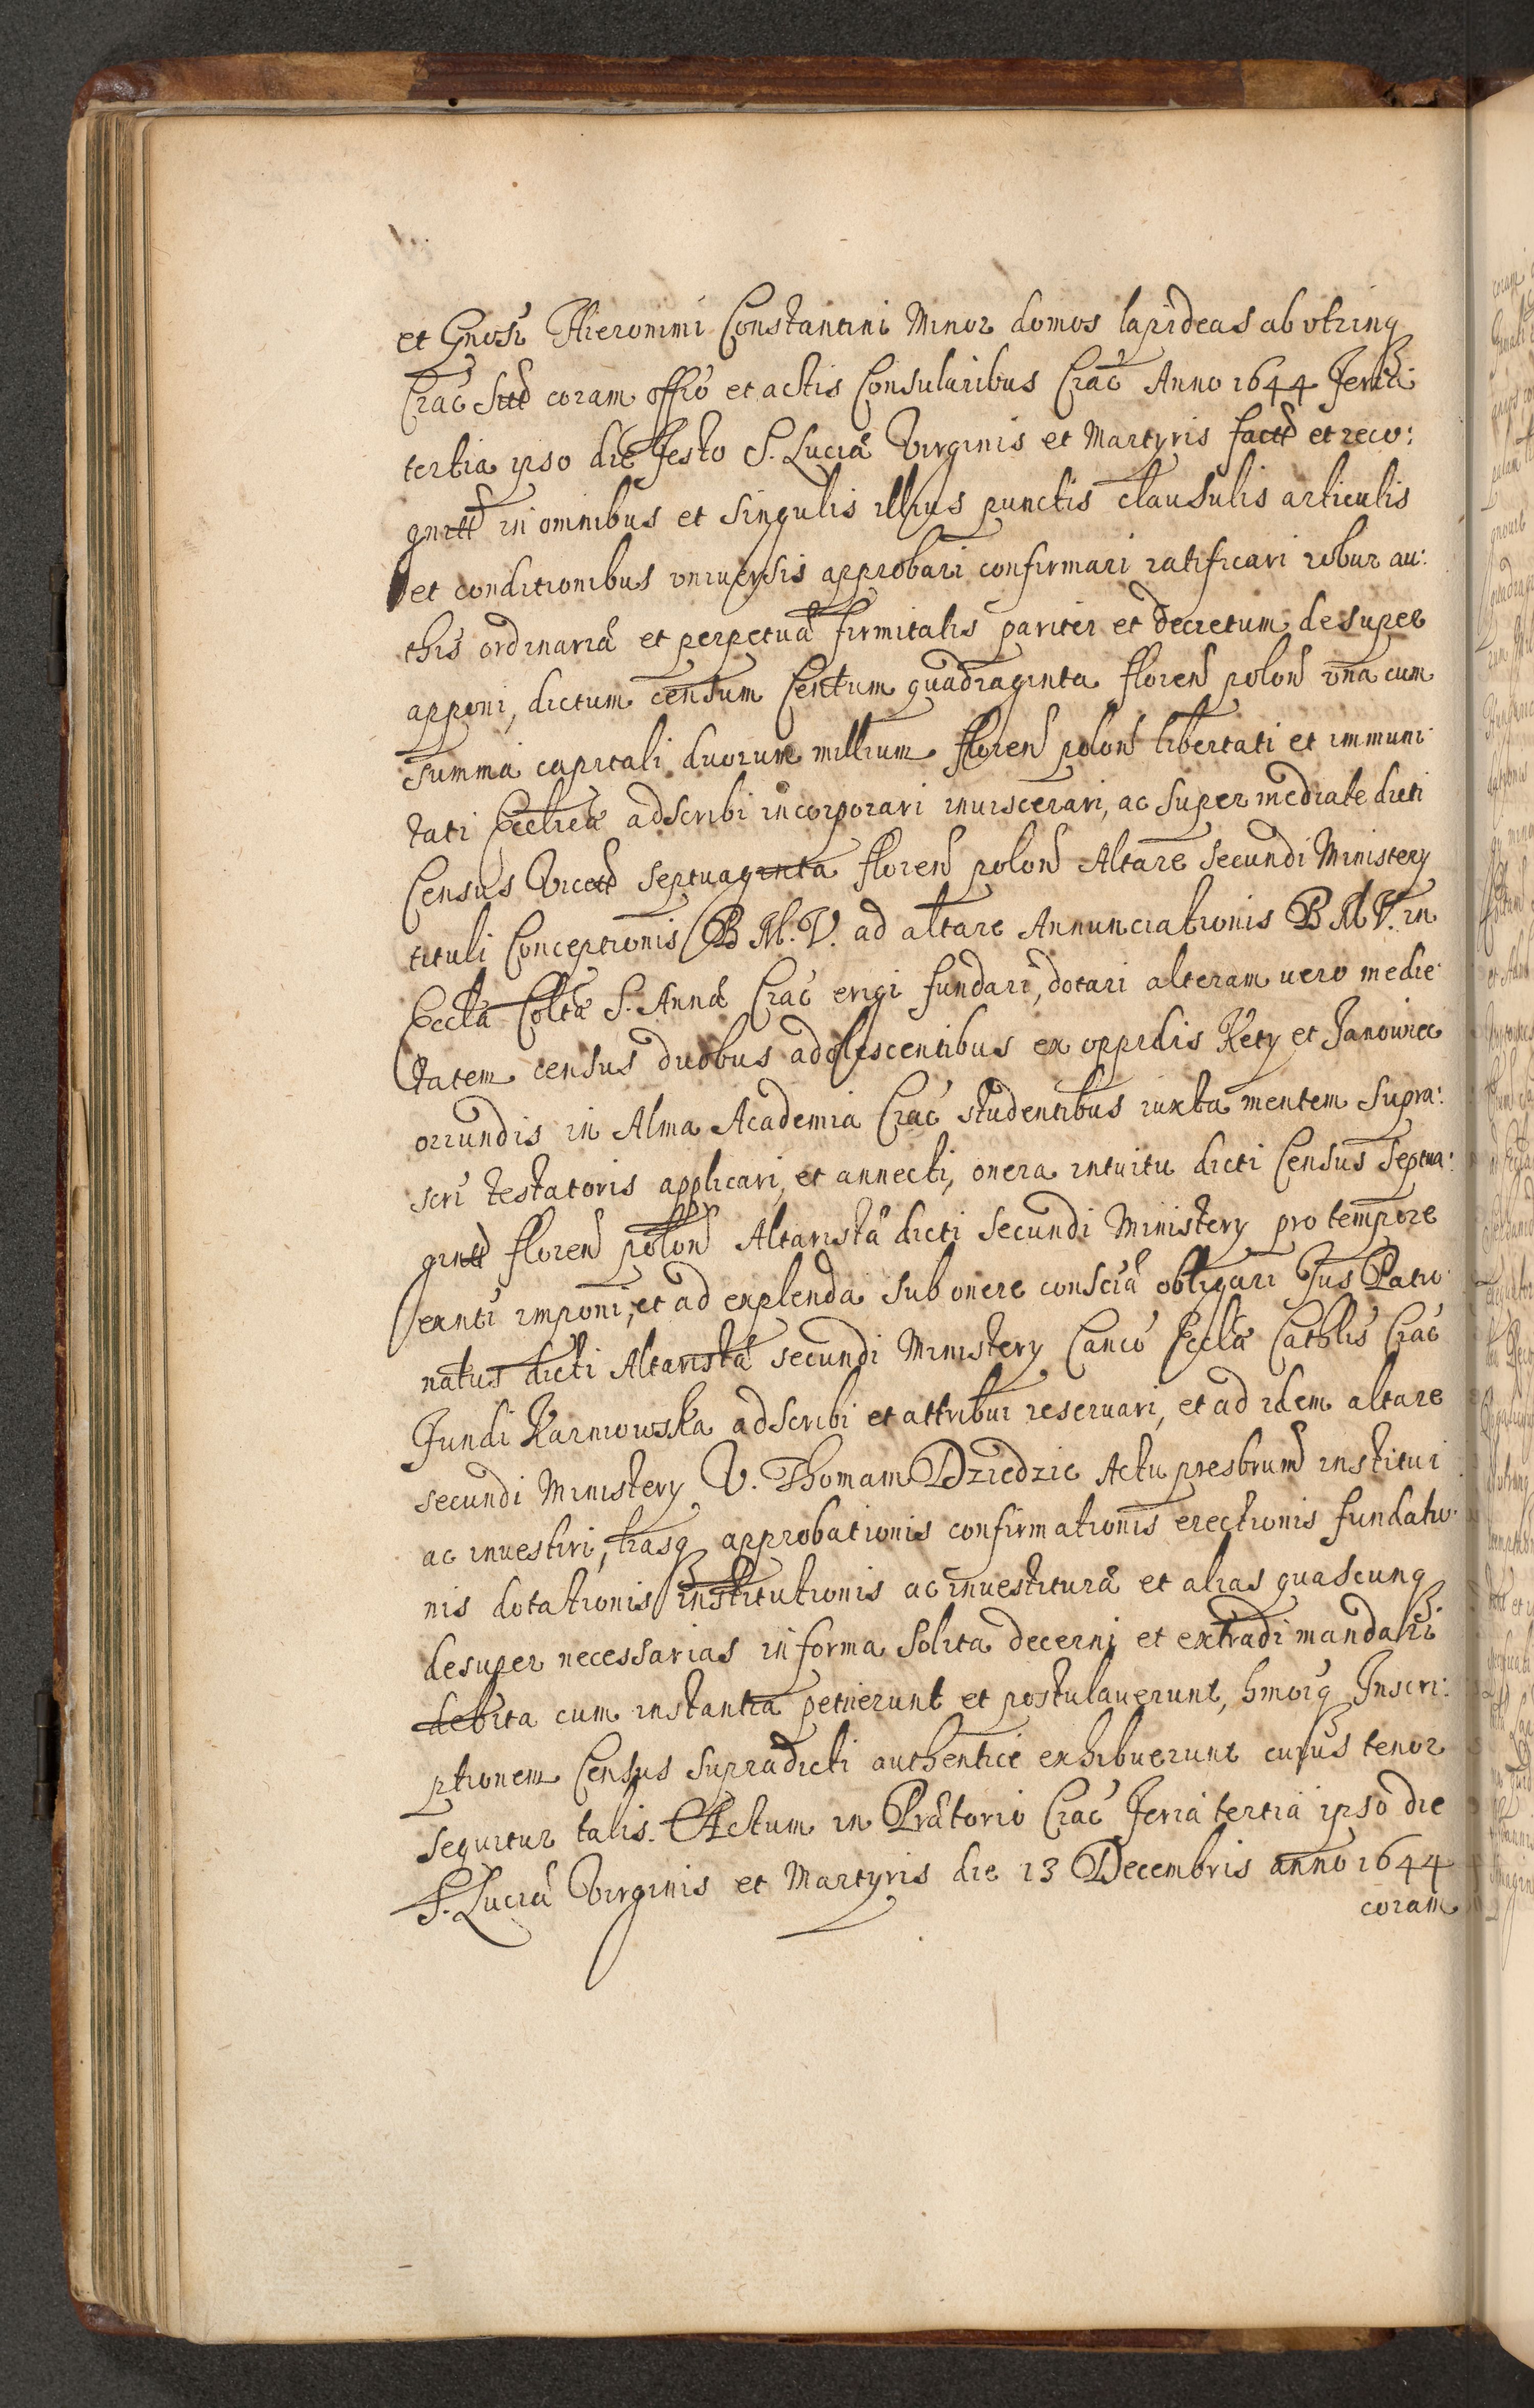 et Gnosi Hieronimi Constantini Minor domos lapideas ab vtrinq
Crac sitt coram offio et actis Consularibus Crac Anno 1644 Feria
tertia ipso die Festo S. Luciæ Virginis et Martyris factt et reco:
gnitt in omnibus et singulis illius punctis clausulis articulis
et conditionibus vniuersis approbari confirmari ratificari robur au:
this ordinariæ et perpetuæ firmitatis pariter et decretum desuper
apponi, dictum censum Centum quadraginta floren polon vna cum
summa capitali duorum millium floren polon libertati et immuni
tati Eccliæ adscribi incorporari inuiscerari, ac super medietate dicti
Census Vicett septuaginta floren polon Altare secundi Ministery
tituli Conceptionis B M. V. ad altare Annunciationis B M V. in
Eccla Collta S. Annæ Crac erigi fundari, dotari alteram uero medie
tatem census duobus adolescentibus ex oppidis Kety et Janowiec
oriundis in Alma Academia Crac studentibus iuxta mentem supra:
scri testatoris applicari, et annecti, onera intuitu dicti Census septua:
gintt floren polon Altaristæ dicti secundi Ministery pro tempore
exnti imponi, et ad explenda sub onere consciæ obligari Jus Patro
natus dicti Altaristæ secundi Ministery Canco Ecclæ Cathlis Crac
Fundi Karniowska adscribi et attribui reseruari, et ad idem altare
secundi Ministery V. Thomam Dziedzic Actu presbrum institui
ac inuestiri, trasq approbationis confirmationis erectionis fundatio
nis dotationis institutionis ac inuestituræ et alias quascunq
desuper necessarias in forma solita decerni et extradi mandari
debita cum instantia petierunt et postulauerunt, hmoiq Inscri:
ptionem Census supradicti authentice exhibuerunt cuius tenor
sequitur talis. Actum in Prætorio Crac Feria tertia ipso die
S. Luciæ Virginis et Martyris die 13 Decembris anno 1644
coram